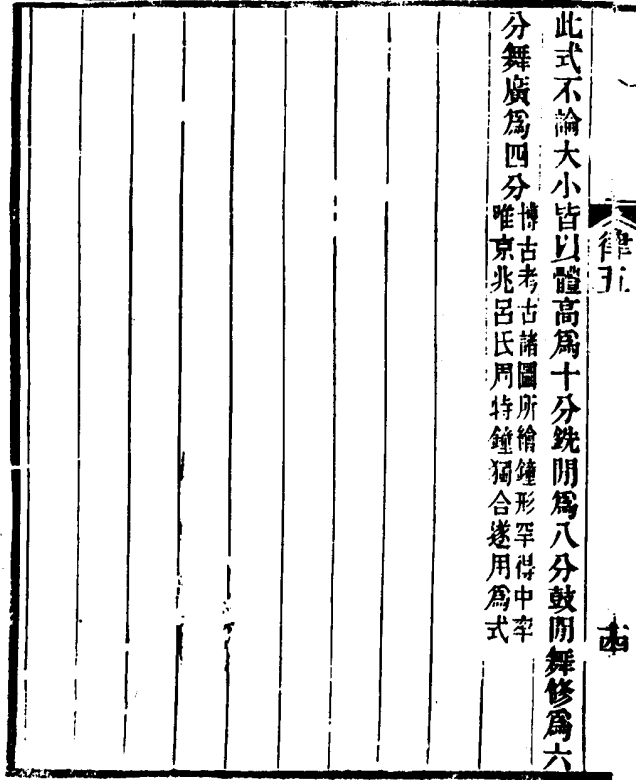 律五
十四
此式不論大小皆以體高爲十分銑閒爲八分鼓閒舞修爲六
分舞廣爲四分
博古考古諸圖所繪鐘形罕得中率
唯京兆呂氏周特鐘獨合遂用爲式